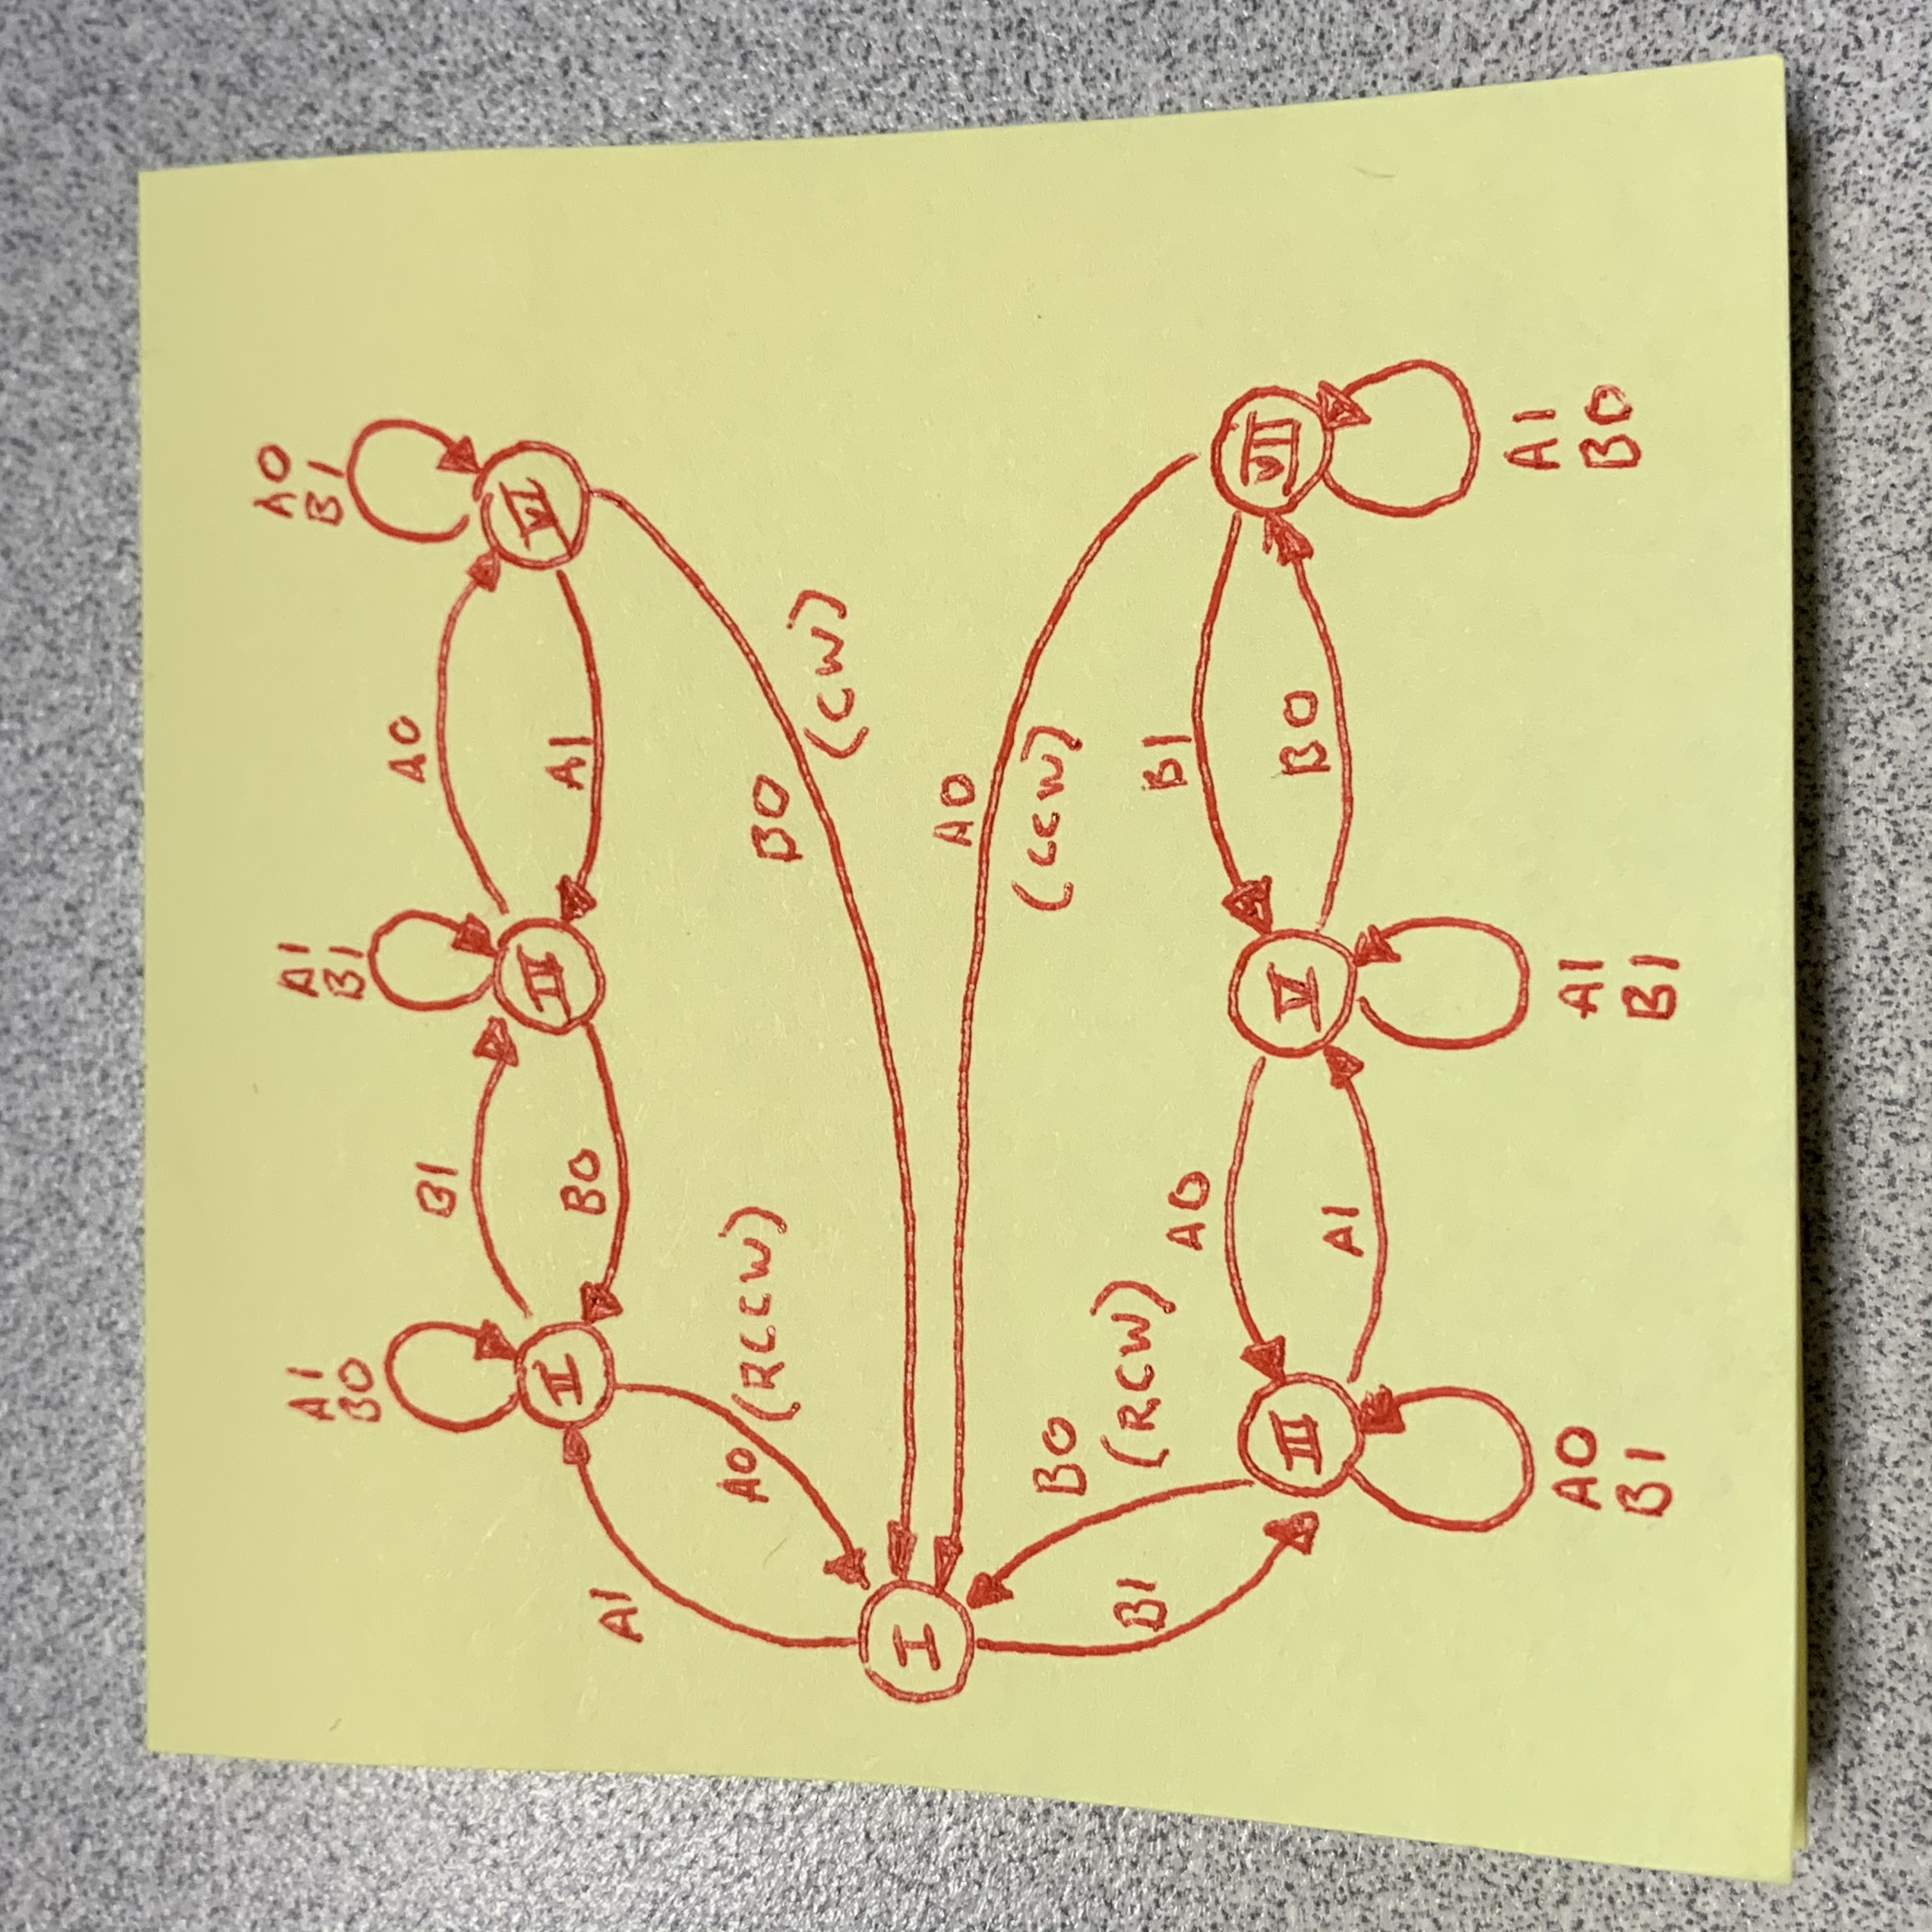 A1
B0
A1
B1
A0
B1
B1
A0
II
IV
VI
B0
A1
A1
A0 (RCCW)
B0
(CW)
I
A0
(CCW)
B0
(RCW)
B1
A0
B1
III
V
VII
A1
B0
A0
B1
A1
B1
A1
B0